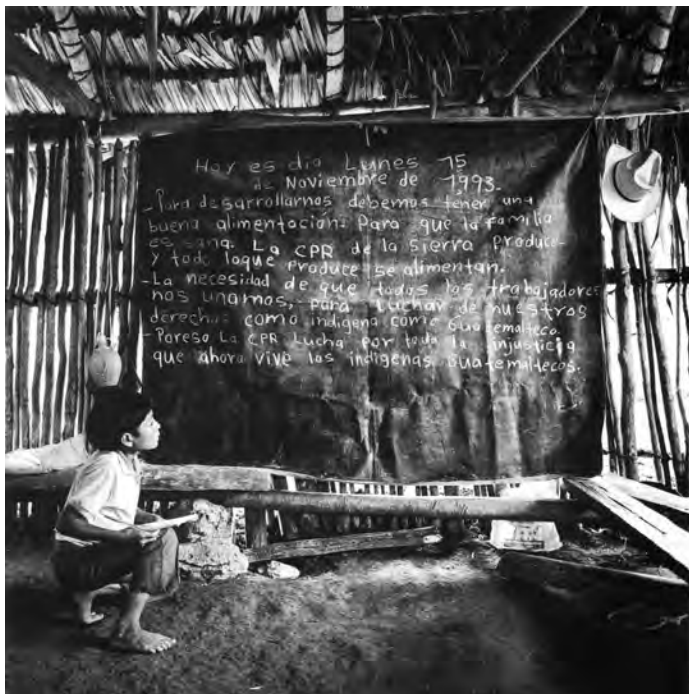 Hoy es dia Lunes 15
de Noviembre de 1993.
- Para desarrollarnos debemos tener una
buena alimentación. Para que la familia
es sana. La CPR de la sierra produce
y todo loque produce se alimentan.
- La necesidad de que todos los trabajadores
nos unamos, para luchar de nuestros
derechos como indigena como Guatemalteco.
- Poreso La CPR Lucha por toda la injusticia
que ahora vive los indigenas Guatemaltecos.